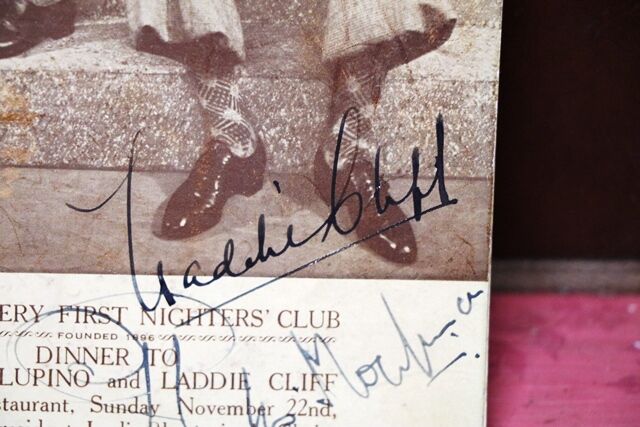 Laddie Cliff
ERY FIRST NIGHTERS' CLUB
FOUNDED 1896
DINNER TO
LUPINO and LADDIE CLIFF
staurant, Sunday November 22nd,